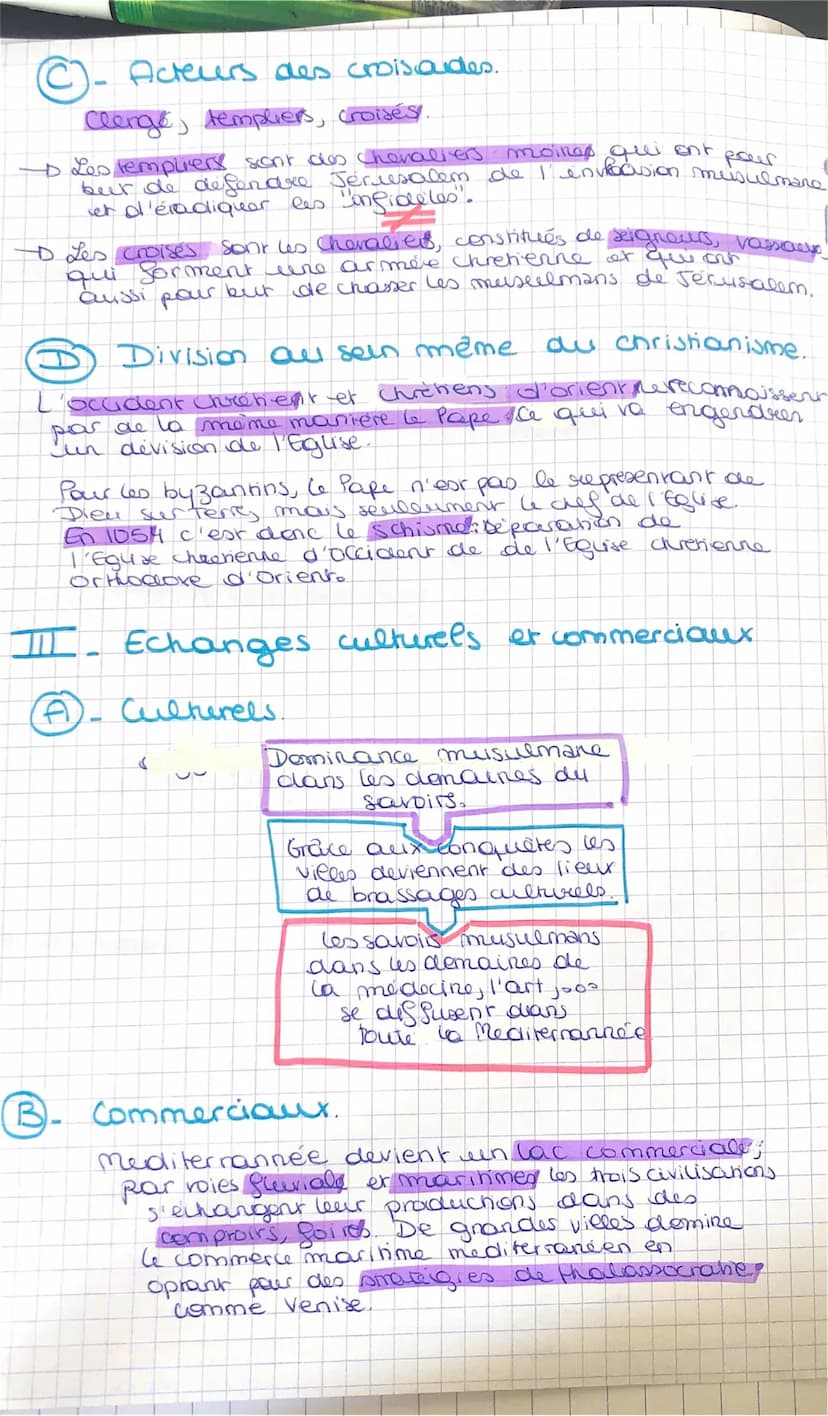 C - Acteurs des croisades.
Clergé, templiers, croisés.
→ Les templiers sont des chevaliers moines qui ont pour
but de défendre Jérusalem de l'invasion musulmane
et d'éradiquer les "infidèles".
≠
→ Les croisés sont les chevaliers, constitués de seigneurs, vassaux
qui forment une armée chretienne et qui ont
aussi pour but de chasser les musulmans de Jerusalem.
D Division au sein même du christianisme.
L'occident chrétient et chrétiens d'orient ne reconnaissent
pas de la même manière le Pape, ce qui va engendrer
un division de l'Eglise.
Pour les byzantins, le Pape n'est pas le representant de
Dieu sur terre, mais seulement le chef de l'Eglise.
En 1054 c'est donc le schisme: séparation de
l'Eglise chretienne d'Occident de de l'Eglise chretienne
orthodoxe d'Orient.
III - Echanges culturels et commerciaux
A - Culturels.
Dominance musulmane
dans les domaines du
savoirs.
Grâce aux conquêtes les
villes deviennent des lieux
de brassages culturels.
les savoirs musulmans
dans les domaines de
la médecine, l'art,...
se diffusent dans
toute la Mediterrannée
B - Commerciaux.
Mediterrannée devient un lac commerciale;
par voies fluviale et maritimes les trois civilisations
s'échangent leur productions dans des
comptoirs, foires. De grandes villes domine
le commerce maritime mediterranéen en
optant pour des stratégies de thalassocratie,
comme Venise.